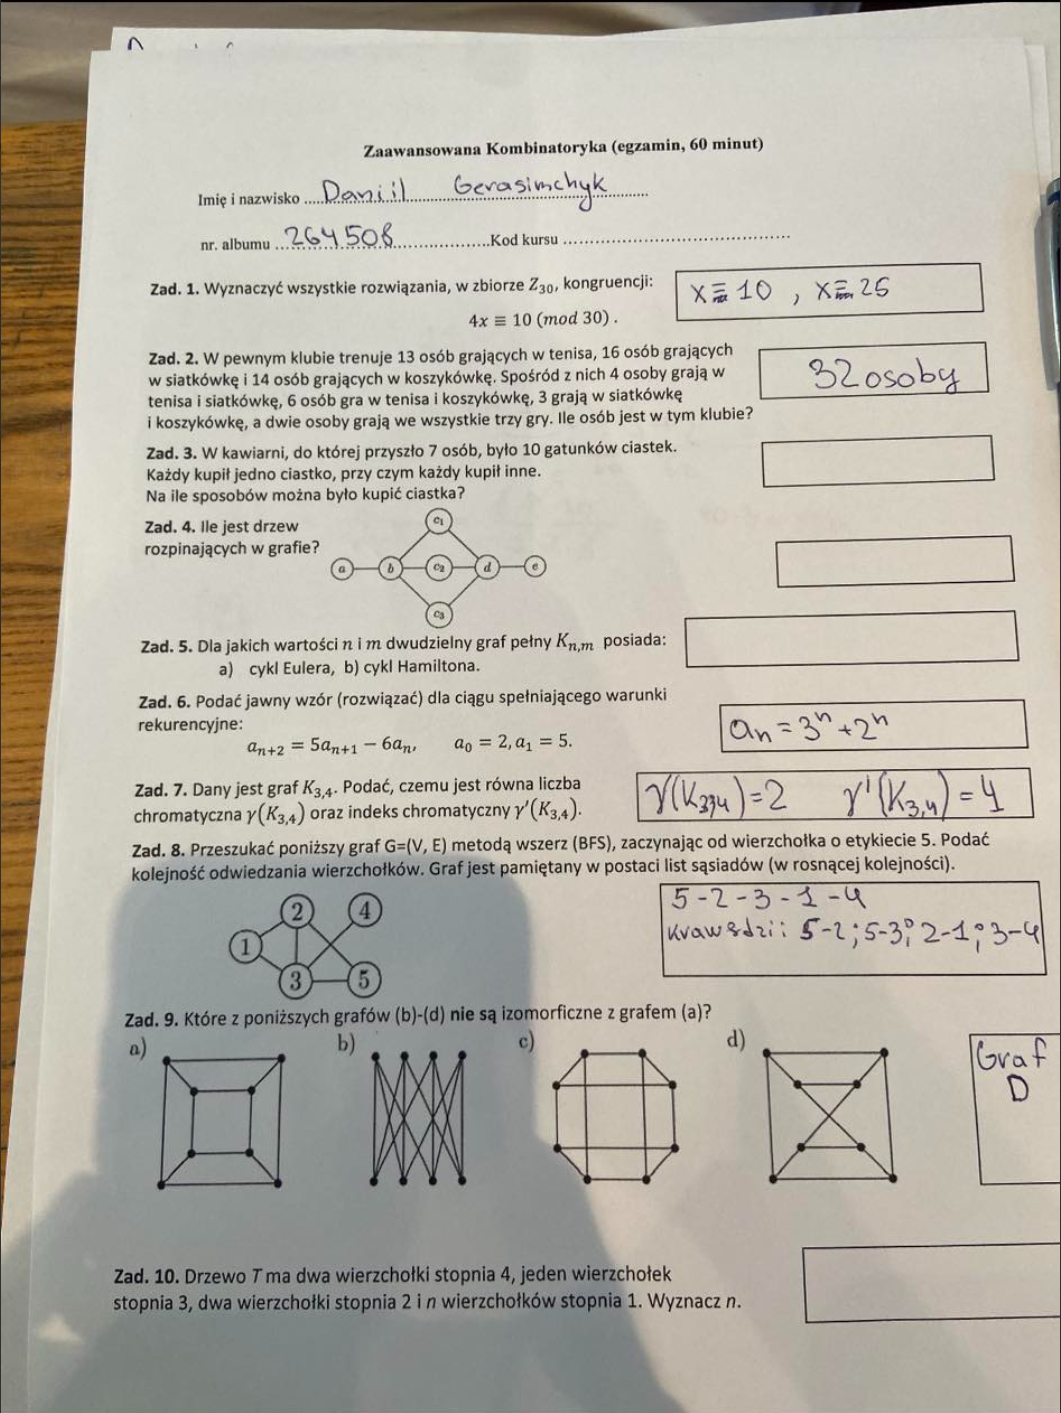 Zaawansowana Kombinatoryka (egzamin, 60 minut)
Imię i nazwisko ..... Daniil Gerasimchyk
nr. albumu ... 264508 ...................Kod kursu ..............................................
Zad. 1. Wyznaczyć wszystkie rozwiązania, w zbiorze Z₃₀, kongruencji:
4x ≡ 10 (mod 30) .
x ≡ 10 , x ≡ 25
Zad. 2. W pewnym klubie trenuje 13 osób grających w tenisa, 16 osób grających
w siatkówkę i 14 osób grających w koszykówkę. Spośród z nich 4 osoby grają w
tenisa i siatkówkę, 6 osób gra w tenisa i koszykówkę, 3 grają w siatkówkę
i koszykówkę, a dwie osoby grają we wszystkie trzy gry. Ile osób jest w tym klubie?
32 osoby
Zad. 3. W kawiarni, do której przyszło 7 osób, było 10 gatunków ciastek.
Każdy kupił jedno ciastko, przy czym każdy kupił inne.
Na ile sposobów można było kupić ciastka?
Zad. 4. Ile jest drzew
rozpinających w grafie?
c₁
a b c₂ d e
c₃
Zad. 5. Dla jakich wartości n i m dwudzielny graf pełny Kₙ,ₘ posiada:
a) cykl Eulera, b) cykl Hamiltona.
Zad. 6. Podać jawny wzór (rozwiązać) dla ciągu spełniającego warunki
rekurencyjne:
aₙ₊₂ = 5aₙ₊₁ − 6aₙ, a₀ = 2, a₁ = 5.
aₙ = 3ⁿ + 2ⁿ
Zad. 7. Dany jest graf K₃,₄. Podać, czemu jest równa liczba
chromatyczna γ(K₃,₄) oraz indeks chromatyczny γ′(K₃,₄).
γ(K₃,₄) = 2 γ'(K₃,₄) = 4
Zad. 8. Przeszukać poniższy graf G=(V, E) metodą wszerz (BFS), zaczynając od wierzchołka o etykiecie 5. Podać
kolejność odwiedzania wierzchołków. Graf jest pamiętany w postaci list sąsiadów (w rosnącej kolejności).
5-2-3-1-4
krawędzi: 5-2; 5-3; 2-1; 3-4
2 4
1
3 5
Zad. 9. Które z poniższych grafów (b)-(d) nie są izomorficzne z grafem (a)?
a) b) c) d)
Graf
D
Zad. 10. Drzewo T ma dwa wierzchołki stopnia 4, jeden wierzchołek
stopnia 3, dwa wierzchołki stopnia 2 i n wierzchołków stopnia 1. Wyznacz n.